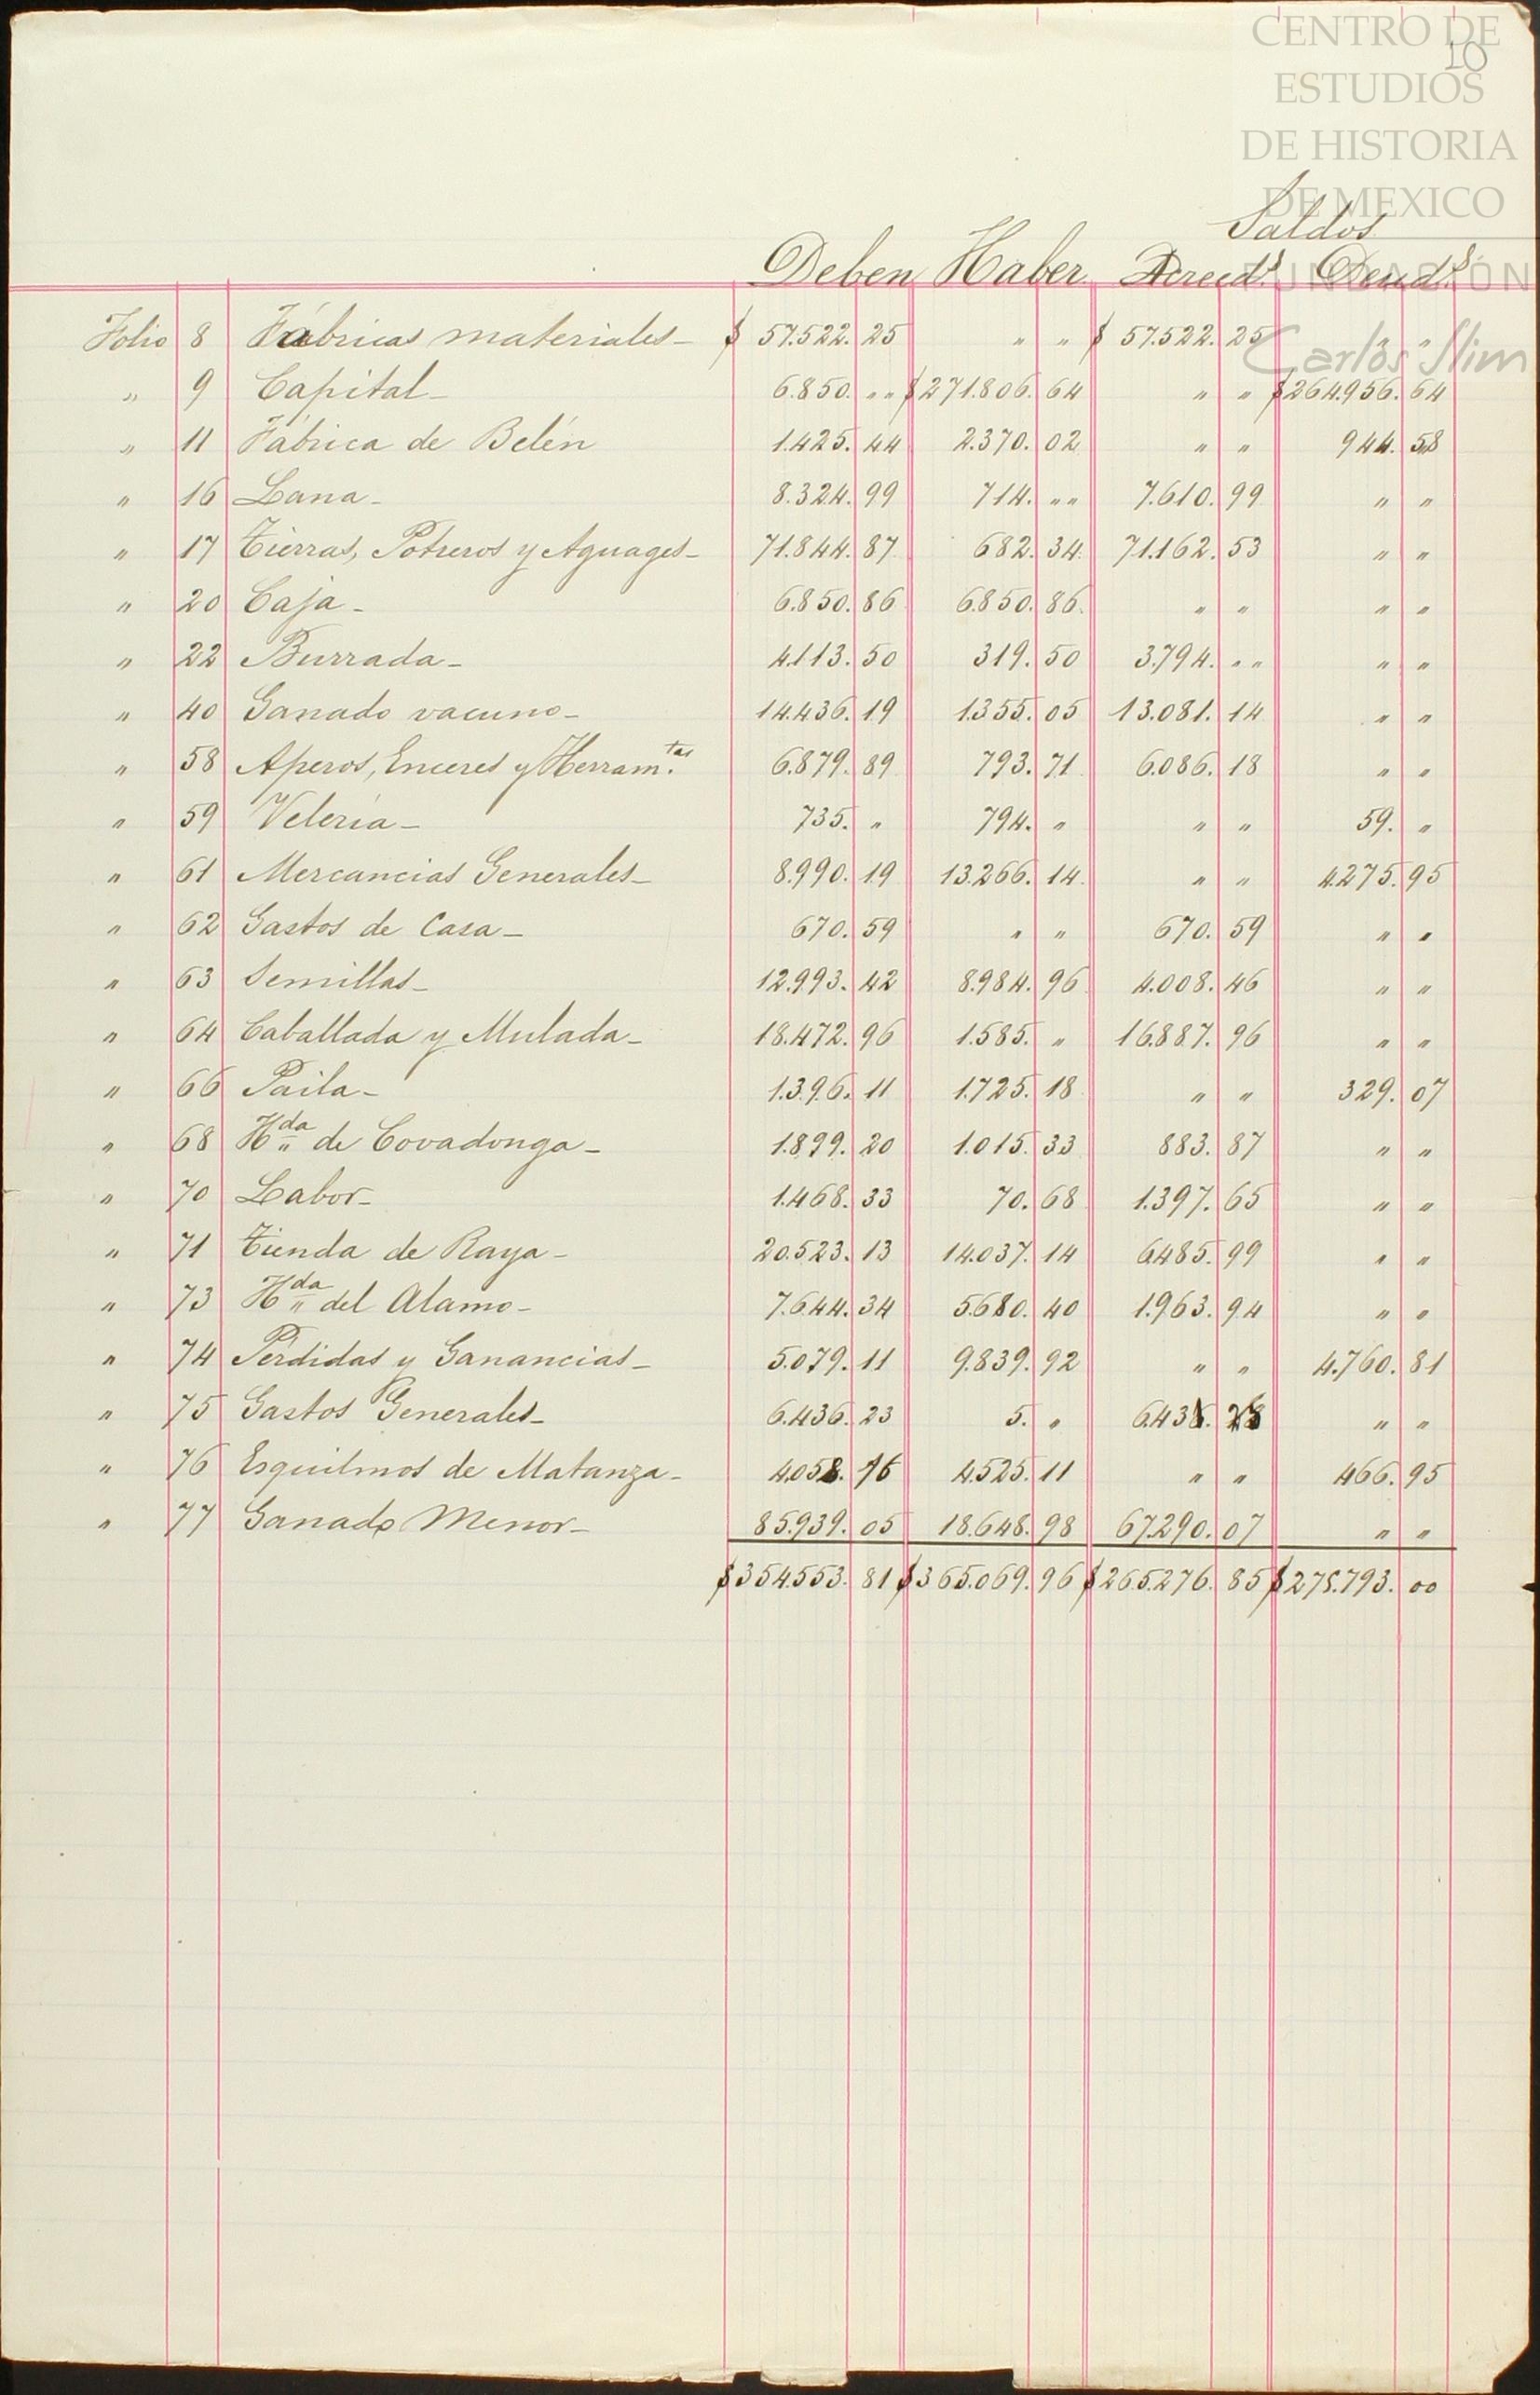 CENTRO DE
10
ESTUDIOS
DE HISTORIA
DE MEXICO
FUNDACIÓN
Carlos Slim
Saldos
Deben Haber Acreed.s Deud.s
Folio 8 Fábricas materiales - $ 57.522. 25 " " $ 57.522. 25 " "
" 9 Capital - 6.850. " " $ 271.806. 64 " " $ 264.956. 64
" 11 Fábrica de Belén 1.425. 44 2.370. 02 " " 944. 58
" 16 Lana - 8.324. 99 714. " " 7.610. 99 " "
" 17 Tierras, Potreros y Aguages - 71.844. 87 682. 34 71.162. 53 " "
" 20 Caja - 6.850. 86 6.850. 86 " " " "
" 22 Burrada - 4.113. 50 319. 50 3.794. " " " "
" 40 Ganado vacuno - 14.436. 19 1.355. 05 13.081. 14 " "
" 58 Aperos, Enceres y Herram.tas 6.879. 89 793. 71 6.086. 18 " "
" 59 Velería - 735. " 794. " " " 59. "
" 61 Mercancias Generales - 8.990. 19 13.266. 14 " " 4.275. 95
" 62 Gastos de Casa - 670. 59 " " 670. 59 " "
" 63 Semillas - 12.993. 42 8.984. 96 4.008. 46 " "
" 64 Caballada y Mulada - 18.472. 96 1.585. " 16.887. 96 " "
" 66 Paila - 1.396. 11 1.725. 18 " " 329. 07
" 68 Hda de Covadonga - 1.899. 20 1.015. 33 883. 87 " "
" 70 Labor - 1.468. 33 70. 68 1.397. 65 " "
" 71 Tienda de Raya - 20.523. 13 14.037. 14 6.485. 99 " "
" 73 Hda del Alamo - 7.644. 34 5.680. 40 1.963. 94 " "
" 74 Pérdidas y Ganancias - 5.079. 11 9.839. 92 " " 4.760. 81
" 75 Gastos Generales - 6.436. 23 5. " 6.431. 23 " "
" 76 Esquilmos de Matanza - 4.058. 16 4.525. 11 " " 466. 95
" 77 Ganado Menor - 85.939. 05 18.648. 98 67.290. 07 " "
$ 354.553. 81 $ 365.069. 96 $ 265.276. 85 $ 275.793. 00